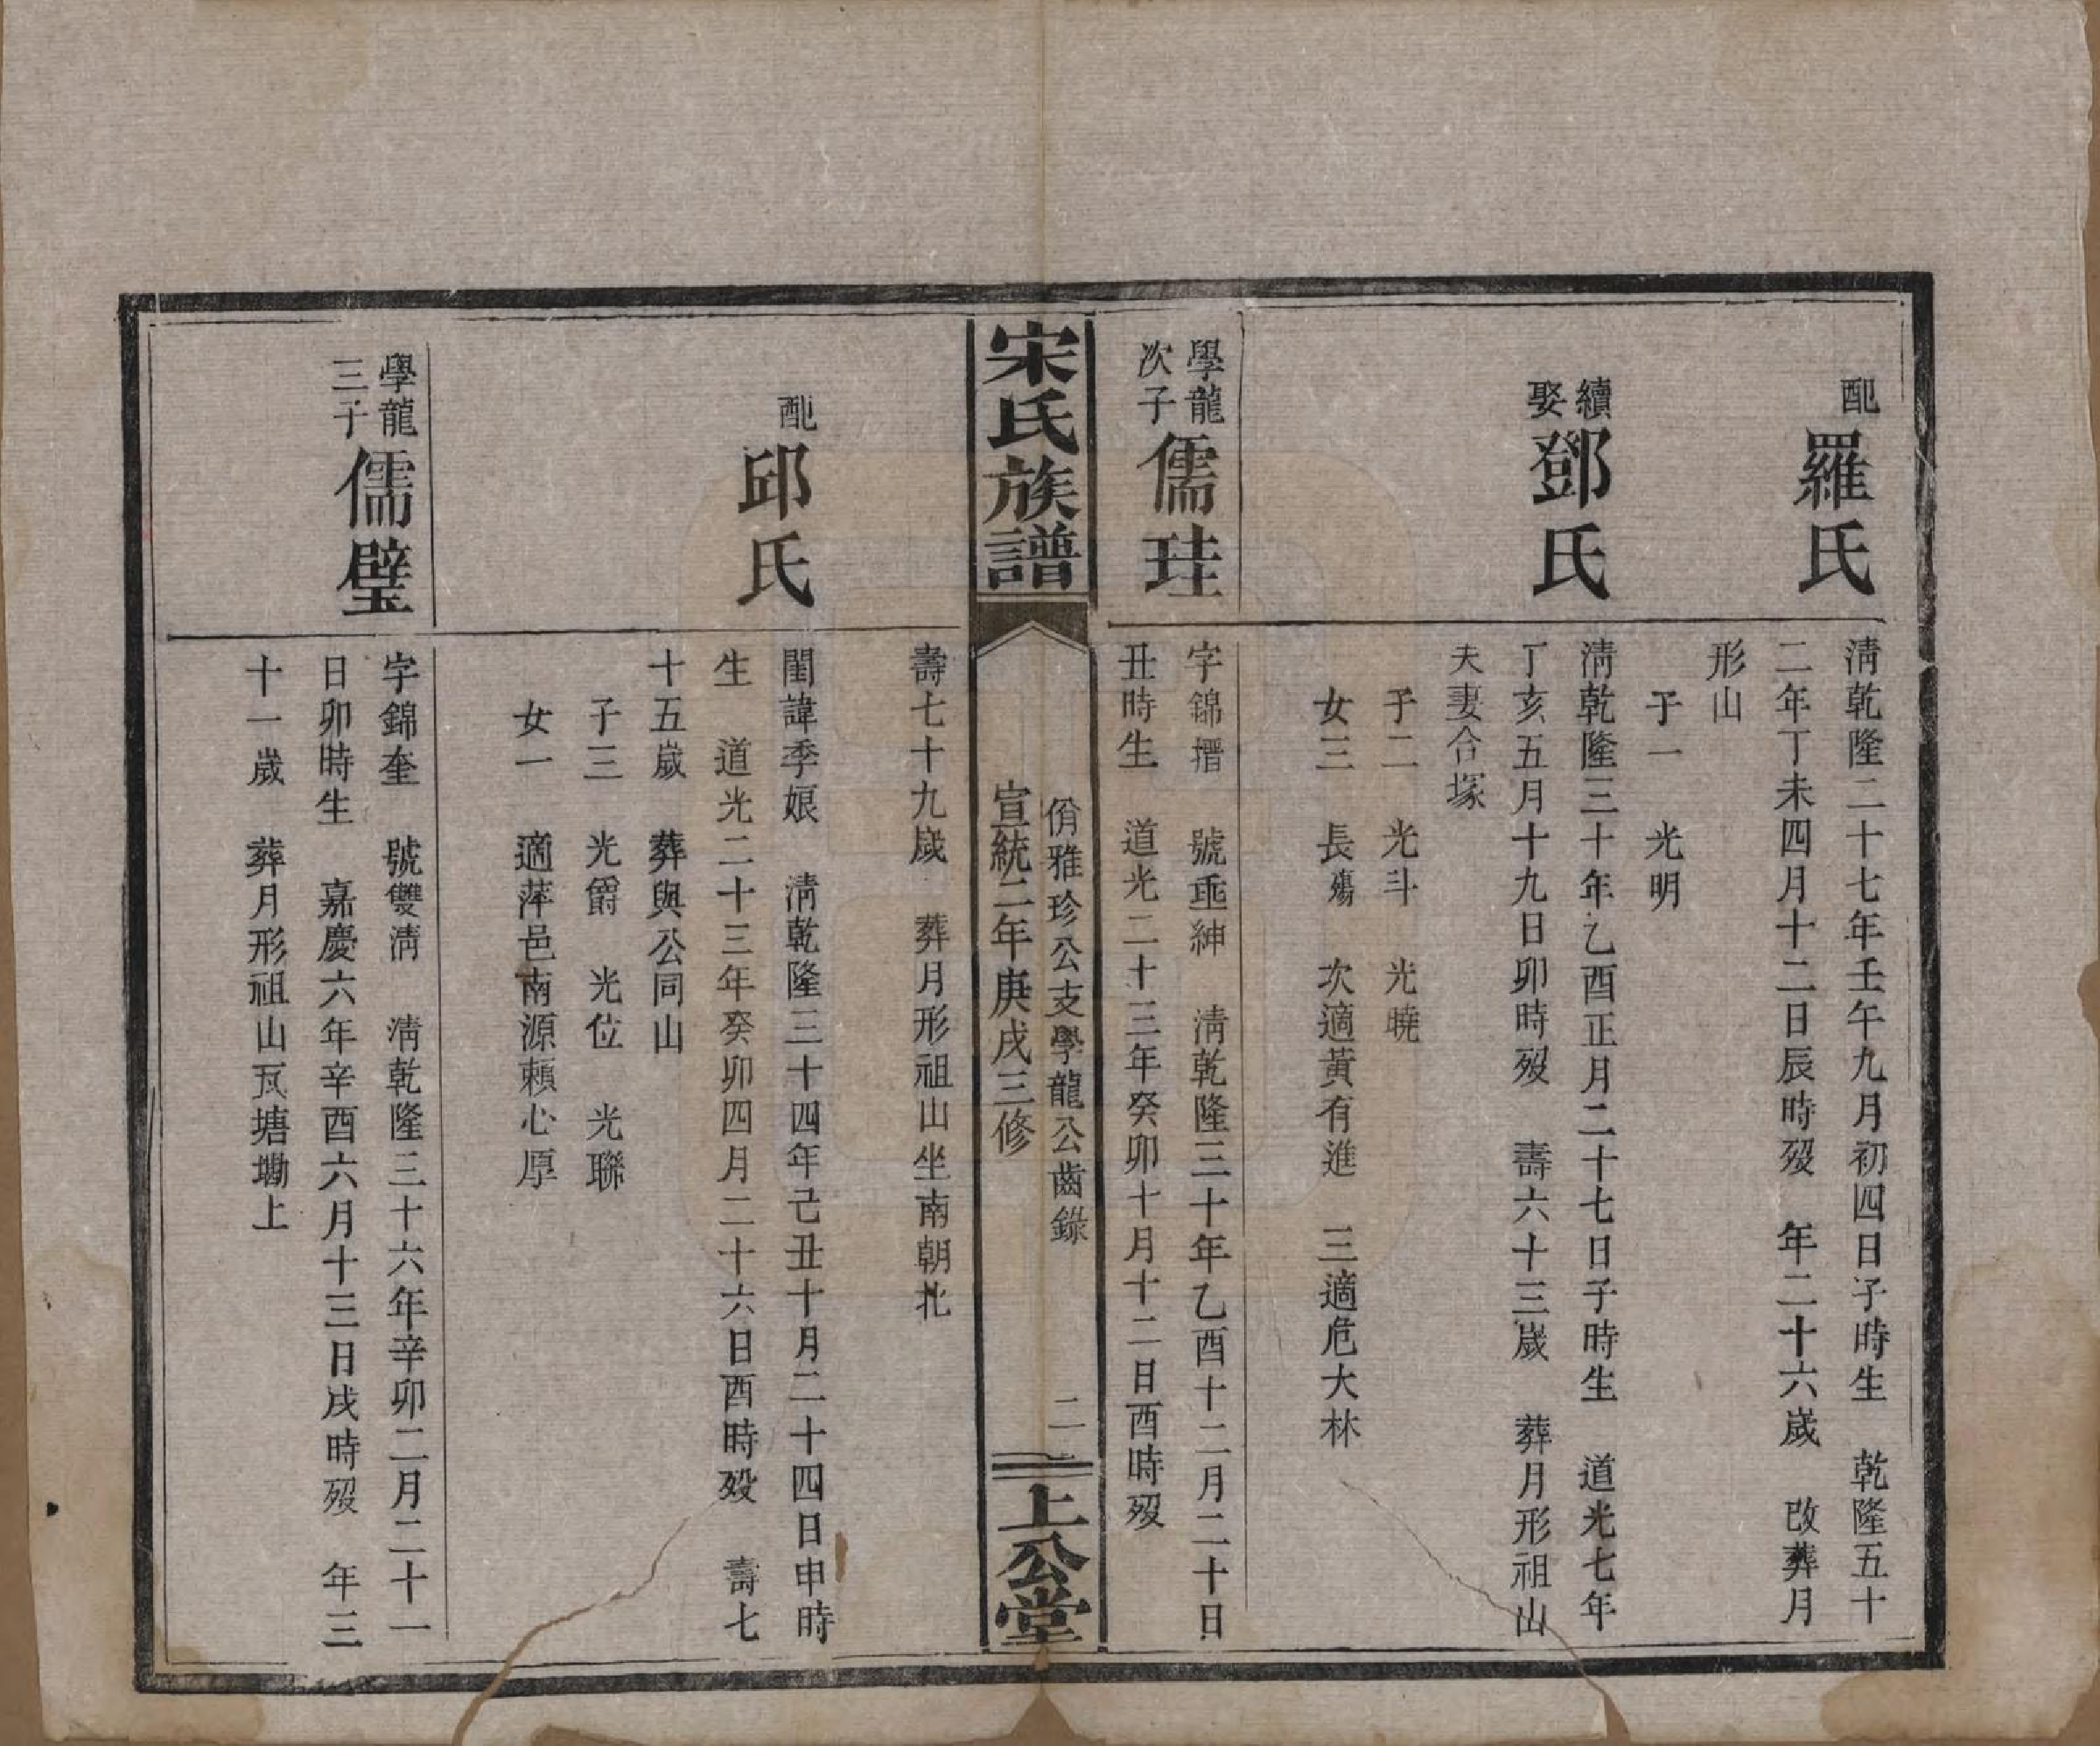 配羅氏
清乾隆二十七年壬午九月初四日子時生　乾隆五十
二年丁未四月十二日辰時歿　年二十六歲　改葬月
形山
子一　光明
續娶鄧氏
清乾隆三十年乙酉正月二十七日子時生　道光七年
丁亥五月十九日卯時歿　壽六十三歲　葬月形祖山
夫妻合塚
子二　光斗　光曉
女三　長殤　次適黃有進　三適危大林
學龍次子儒珪
字錦搢　號垂紳　清乾隆三十年乙酉十二月二十日
丑時生　道光二十三年癸卯十月十二日酉時歿
宋氏族譜
佾雅珍公支學龍公齒錄　二
宣統二年庚戌三修
上公堂
壽七十九歲　葬月形祖山坐南朝北
配邱氏
閨諱季娘　清乾隆三十四年己丑十月二十四日申時
生　道光二十三年癸卯四月二十六日酉時歿　壽七
十五歲　葬與公同山
子三　光爵　光位　光聯
女一　適萍邑南源賴心厚
學龍三子儒璧
字錦奎　號雙清　清乾隆三十六年辛卯二月二十一
日卯時生　嘉慶六年辛酉六月十三日戌時歿　年三
十一歲　葬月形祖山瓦塘墈上